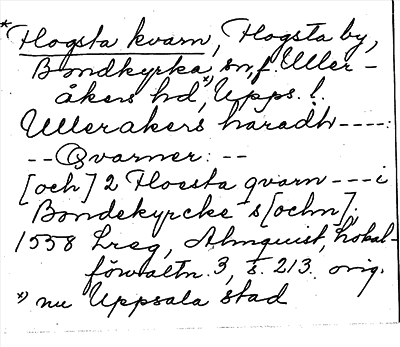 * Hogsta kvarn, Hogsta by,
Bondkyrka *) sn, f. Uller-
åkers hd, Upps. l.
Ullerakers häradh ----:
-- Qvarner: --
[och] 2 Hoesta qvarn --- i
Bondekyrcke s[ochn],
1558 Lreg, Almquist, Lokal-
förvaltn. 3, s. 213. orig.
*) nu Uppsala stad